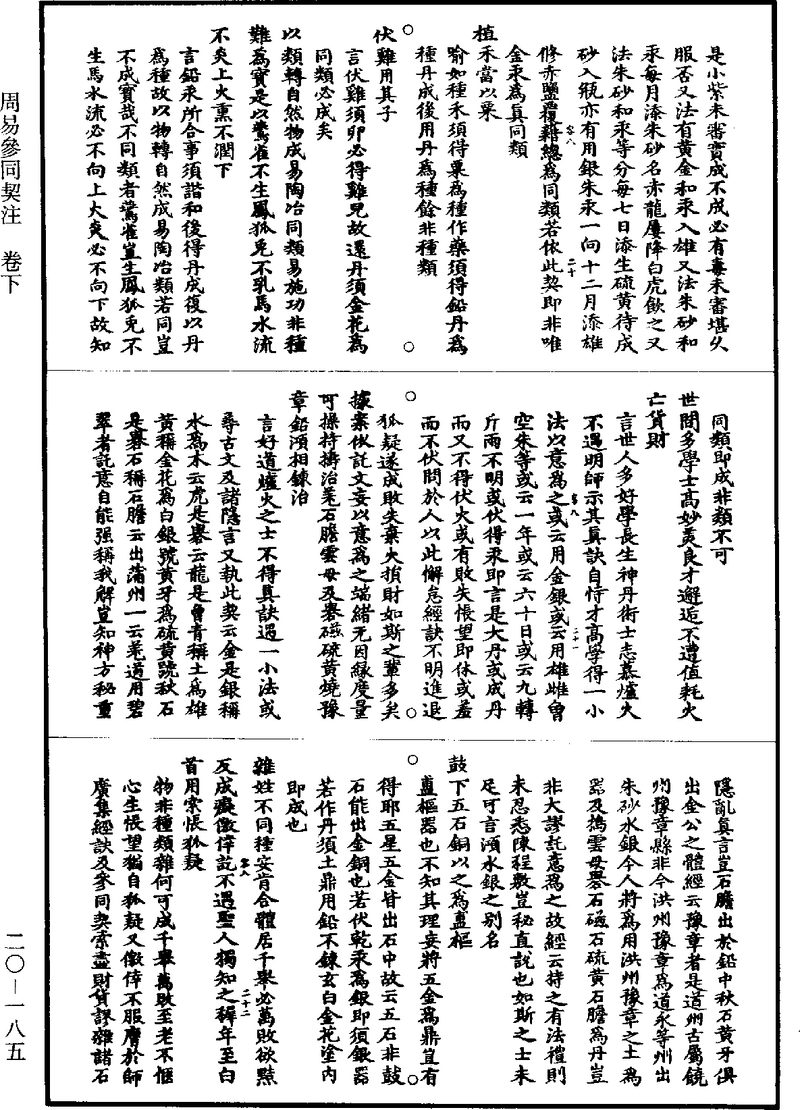 周易參同契注　卷下
二〇—一八五
是小紫未審實成不成必有毒未審堪久
服否又法有黃金和汞入雄又法朱砂和
汞每月添朱砂名赤龍屢降白虎飲之又
法朱砂和汞等分每七日添生硫黃待成
砂入瓶亦有用銀朱汞一向十二月添雄
修赤鹽覆藉總爲同類若依此契即非唯
金汞爲真同類
植禾當以粟
喻如種禾須得粟爲種作藥須得鉛丹爲
種丹成後用丹爲種餘非種類
伏雞用其子
言伏雞須卵必得雞兒故還丹須金花爲
同類必成矣
以類轉自然物成易陶冶同類易施功非種
難爲實是以鷰雀不生鳳狐兎不乳馬水流
不炎上火熏不潤下
言鉛汞所合事須諧和後得丹成復以丹
爲種故以物轉自然成易陶冶類若同豈
不成寶哉不同類者鷰雀豈生鳳狐兎不
生馬水流必不向上火炎必不向下故知
同類即成非類不可
世間多學士高妙美良才邂逅不遭值耗火
亡貨財
言世人多好學長生神丹術士志慕爐火
不遇明師示其真訣自恃才高學得一小
法以意爲之或云用金銀或云用雄雌曾
空朱等或云一年或云六十日或云九轉
斤兩不明或伏得汞即言是大丹或成丹
而又不得伏火或有敗失悵望即休或羞
而不伏問於人以此懈怠經訣不明進退
狐疑遂成敗失棄火損財如斯之輩多矣
據案依託文妄以意爲之端緒无因緣度量
可操持擣治羗石膽雲母及礜磁硫黃燒豫
章鉛澒相鍊治
言好道爐火之士不得真訣遇一小法或
尋古文及諸隱言又執此契云金是銀稱
水爲木云虎是礜云龍是曾青稱土爲雄
黃稱金花爲白銀號黃牙爲硫黃號秋石
是礜石稱石膽云出蒲州一云羗道用碧
翠者託意自能强稱我解豈知神方秘重
隱亂真言豈石膽出於鉛中秋石黃牙俱
出金公之體經云豫章者是道州古屬饒
州豫章縣非今洪州豫章爲道永等州出
朱砂水銀今人將爲用洪州豫章之土爲
器及擣雲母礜石磁石硫黃石膽爲丹豈
非大謬託意爲之故經云持之有法禮則
未忍悉陳程敷豈秘直說也如斯之士未
足可言澒水銀之別名
鼓下五石銅以之爲𥁞樞
𥁞樞器也不知其理妄將五金爲鼎豈有
得耶五星五金皆出石中故云五石非鼓
石能出金銅也若伏乾汞爲銀即須銀器
若作丹須土鼎用鉛不鍊玄白金花塗内
即成也
雜姓不同種妄肯合體居千舉必萬敗欲黠
反成癡僥倖訖不遇聖人獨知之稱年至白
首用索悵狐疑
物非種類雜何可成千舉萬敗至老不愜
心生悵望猶自狐疑又僥倖不服膺於師
廣集經訣及參同契索盡財貨謬雜諸石